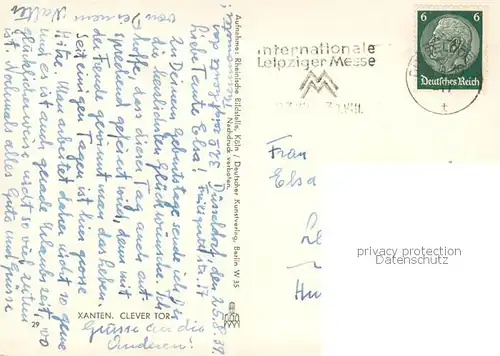 Düsseldorf, den 25.8.39.
Liebe Tante Elsa!
Zu Deinem Geburtstage sende ich Dir
die herzlichsten Glückwünsche. Ich
hoffe, dass dieser Tag auch ent-
sprechend gefeiert wird, denn mit
der Freude gewinnt man das Leben.
Seit einigen Tagen ist hier grosse
Hitze. Man arbeitet daher nicht so gerne
und es ist auch gerade Urlaubszeit, wo
glücklicherweise nicht so viel zu tun
ist. Nochmals alles Gute und Grüsse
von Deinem Walter
Grüsse an die
Anderen!
Aufnahme: Rheinische Bildstelle, Köln / Deutscher Kunstverlag, Berlin W 35
Nachdruck verboten.
XANTEN. CLEVER TOR
29
Internationale
Leipziger Messe
6 6
Deutsches Reich
t
Frau
Elsa
privacy protection
Datenschutz